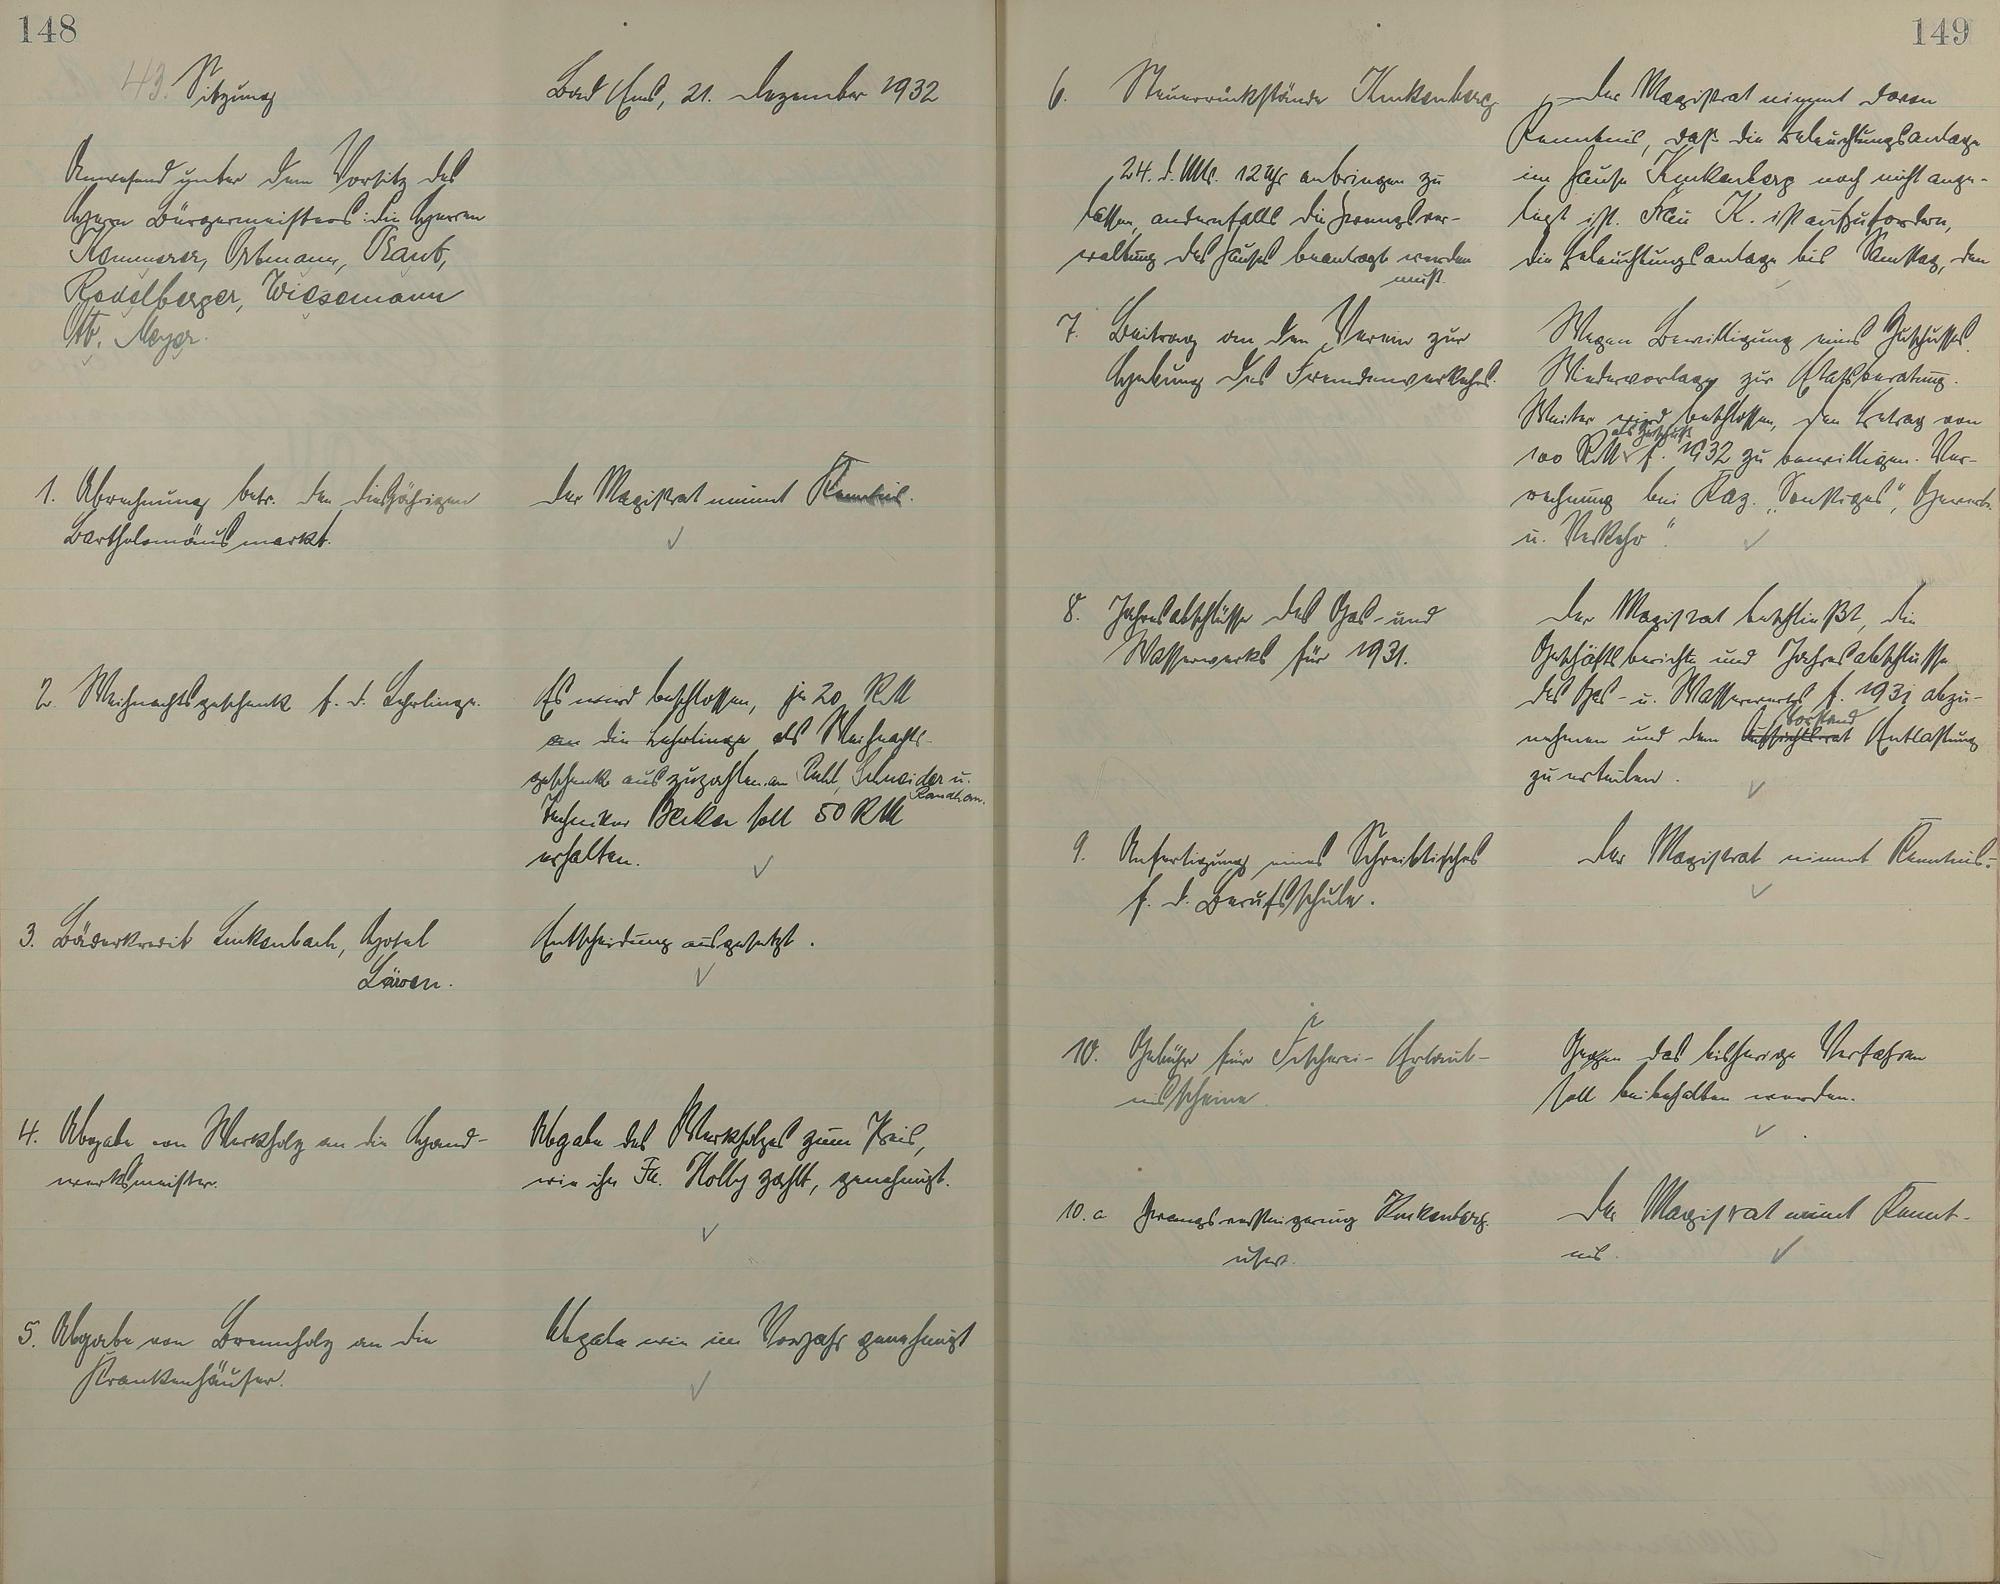 148
43. Sitzung
Bad Ems, 21. Dezember 1932
Anwesend unter dem Vorsitz des
Herrn Bürgermeisters: die Herren
Kemmerer, Ortmann, Raab,
Redelberger, Wiesemann
Meyer.
1. Abrechnung betr. den diesjährigen
Bartholomäusmarkt.
Der Magistrat nimmt Kenntnis.
2. Weihnachtsgeschenk f. d. Lehrlinge.
Es wird beschlossen, je 20 RM
an die Lehrlinge als Weihnachts-
geschenk auszuzahlen an Schneider u.
Techniker Becker soll 50 RM
erhalten.
3. Bäderkredit Linkenbach, Hotel
Löwen.
Entscheidung ausgesetzt.
4. Abgabe von Werkholz an die Hand-
werksmeister.
Abgabe des Werkholzes zum Preis,
wie ihn Fa. Holly zahlt, genehmigt.
5. Abgabe von Brennholz an die
Krankenhäuser.
Abgabe wie im Vorjahr genehmigt
149
6. Steuerrückstände Kinkenberg
Der Magistrat nimmt davon
Kenntnis, daß die Beleuchtungsanlage
im Hause Kinkenberg noch nicht ange-
legt ist. Frau K. ist aufzufordern,
die Beleuchtungsanlage bis Samstag, den
24. d. Mts. 12 Uhr anbringen zu
lassen, andernfalls die Zwangsver-
waltung des Hauses beantragt werden
muß.
7. Beitrag an den Verein zur
Hebung des Fremdenverkehrs.
Wegen Bewilligung eines Zuschusses
Wiedervorlage zur Etatsberatung.
Weiter wird beschlossen, den Betrag von
als Zuschuß
100 RM f. 1932 zu bewilligen. Ver-
rechnung bei Kap. „Sonstiges", Gewerbe
u. Verkehr".
8. Jahresabschlüsse des Gas- und
Wasserwerks für 1931.
Der Magistrat beschließt, die
Geschäftsberichte und Jahresabschlüsse
des Gas- u. Wasserwerks f. 1931 abzu-
Vorstand
nehmen und dem Aufsichtsrat Entlastung
zu erteilen.
9. Anfertigung eines Schreibtisches
f. d. Berufsschule.
Der Magistrat nimmt Kenntnis.
10. Gebühr für Fischerei-Erlaub-
nisscheine.
das bisherige Verfahren
soll beibehalten werden.
10. a Zwangsversteigerung Kinkenberg
Der Magistrat nimmt Kennt-
nis.